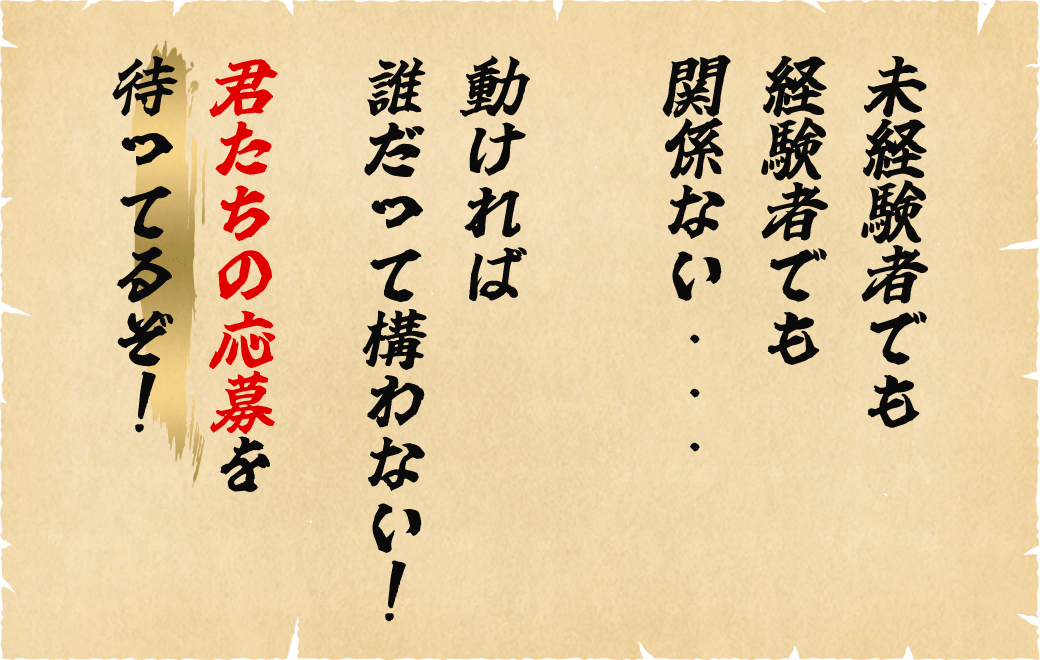 未経験者でも
経験者でも
関係ない・・・
動ければ
誰だって構わない！
君たちの応募を
待ってるぞ！